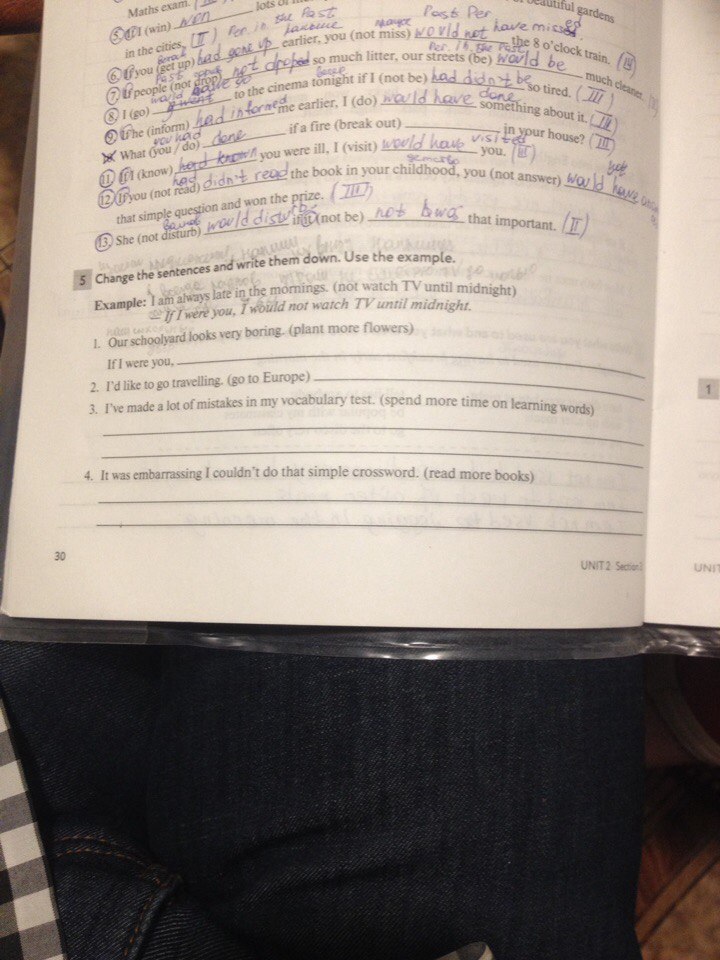 Maths exam.
beautiful gardens
5 If I (win) won lots of
in the cities. (II) Per. in the Past Past Per
6. If you (get up) had gone up earlier, you (not miss) would not have missed the 8 o'clock train. (III)
7. If people (not drop) not droped so much litter, our streets (be) would be much cleaner.
8. I (go) to the cinema tonight if I (not be) had didn't be so tired. (III)
9. If he (inform) had informed me earlier, I (do) would have done something about it. (III)
What (you / do) done if a fire (break out) in your house? (III)
you had
11. If I (know) had known you were ill, I (visit) would have visited you. (III)
12. If you (not read) had didn't read the book in your childhood, you (not answer) would have
that simple question and won the prize. (III)
13. She (not disturb) would disturbe if it (not be) not that important. (II)
5 Change the sentences and write them down. Use the example.
Example: I am always late in the mornings. (not watch TV until midnight)
If I were you, I would not watch TV until midnight.
1. Our schoolyard looks very boring. (plant more flowers)
If I were you,
2. I'd like to go travelling. (go to Europe)
3. I've made a lot of mistakes in my vocabulary test. (spend more time on learning words)
4. It was embarrassing I couldn't do that simple crossword. (read more books)
30
UNIT 2 Section
1
UNIT